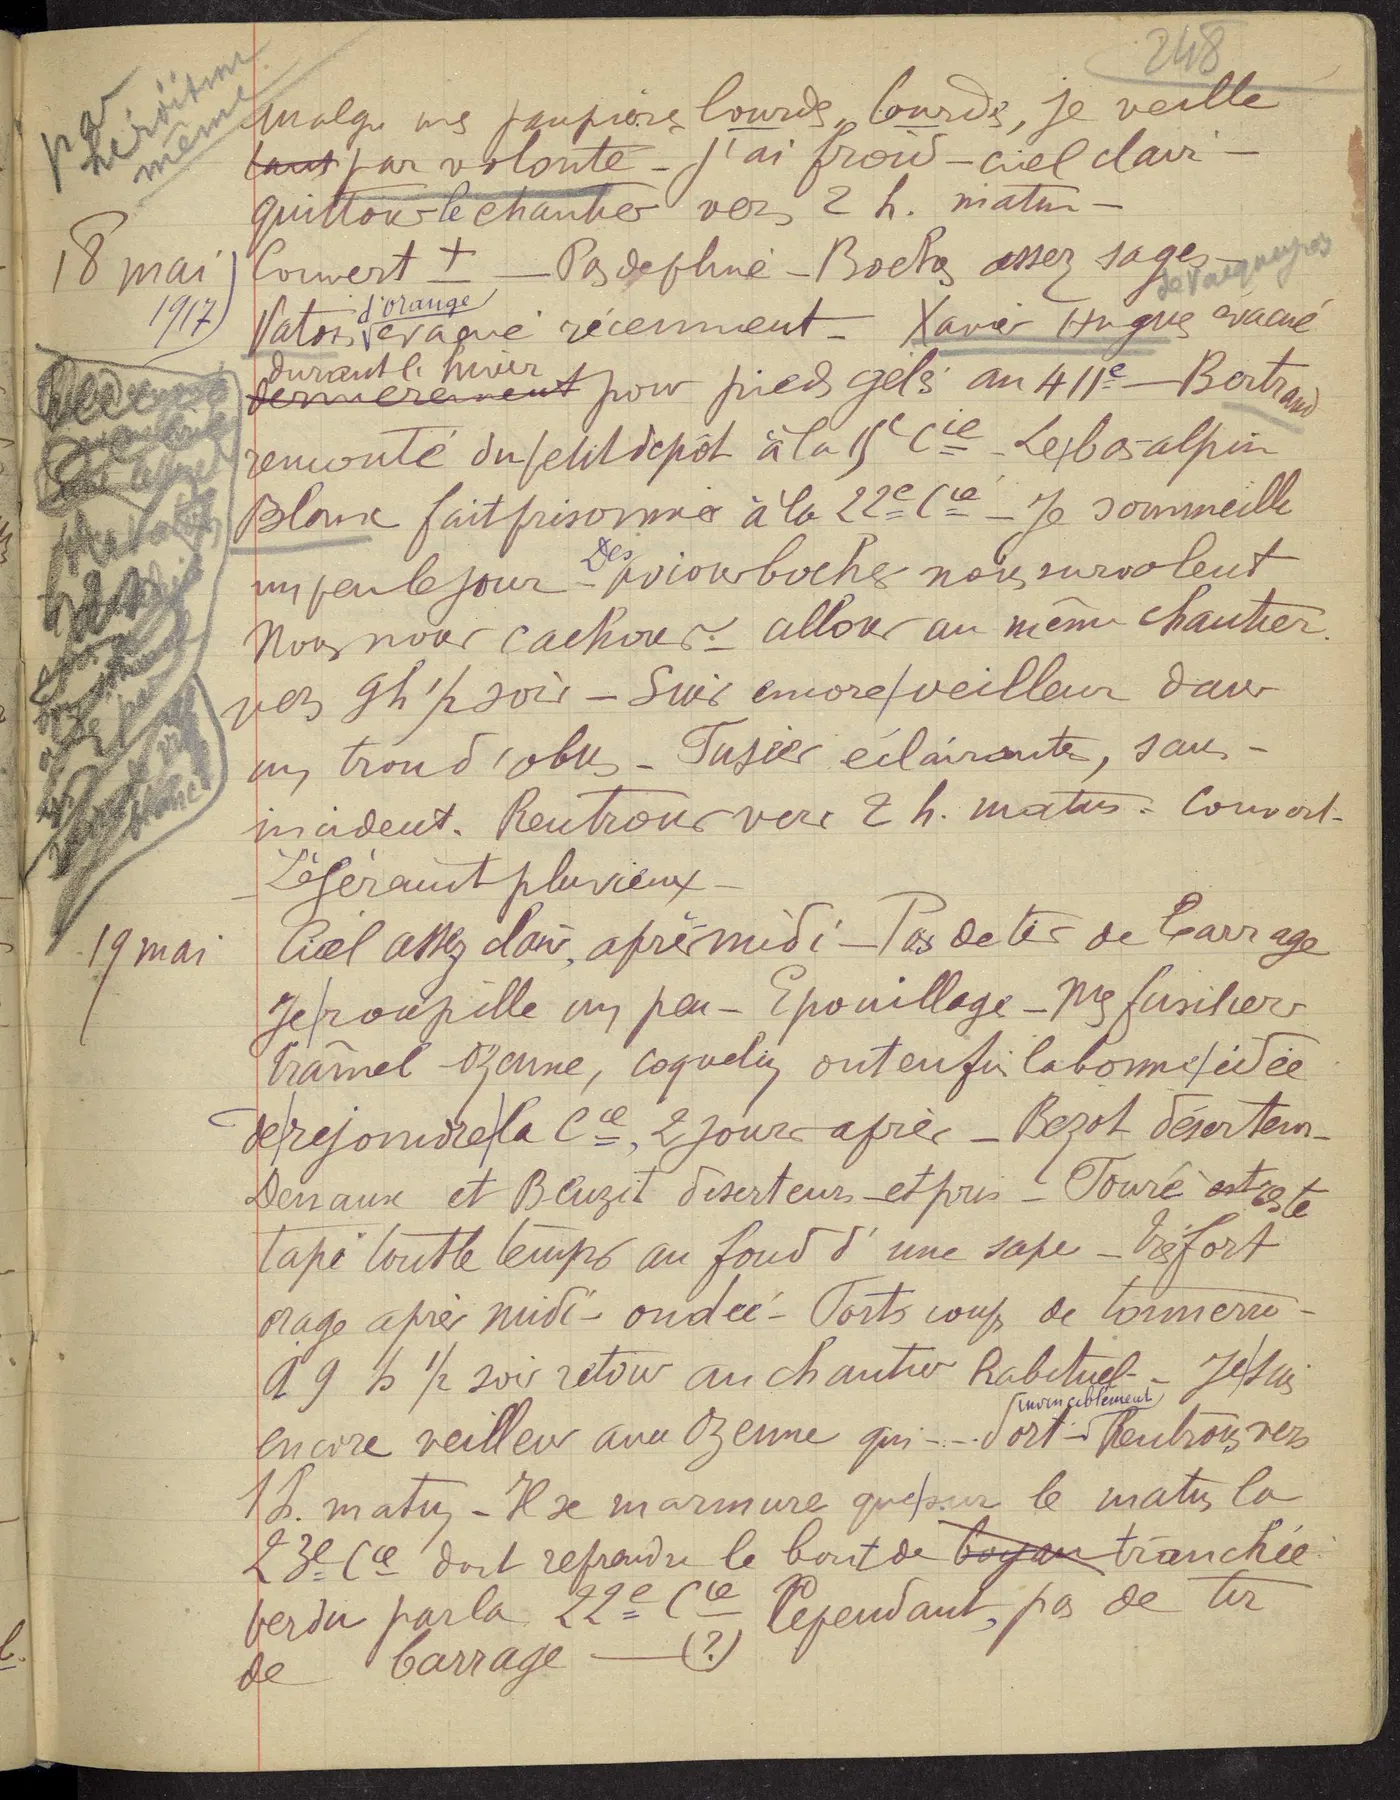 248
par héroïsme même
malgré mes paupières lourdes, lourdes, je veille
tant par volonté - j'ai froid - ciel clair -
quittons le chantier vers 2 h. matin -
18 mai 1917) Couvert + - Pas de pluie - Boches assez sages -
de Vacqueyras
d'orange
Vatos évacué récemment - Xavier Hugues évacué
durant l'hiver
dernièrement pour pieds gelés au 411e - Bertrand
remonté du petit dépôt à la 15e Cie - Le bas-alpin
Blanc fait prisonnier à la 22e Cie - Je sommeille
un peu le jour - Des avions boches nous survolent
Nous nous cachons - allons au même chantier
vers 9h 1/2 soir - Suis encore veilleur dans
un trou d'obus - Fusées éclairantes, sans
incident. Rentrons vers 2 h. matin. Couvert -
- Légèrement pluvieux -
19 mai Ciel assez clair, après midi - Pas de tir de barrage
Je roupille un peu - Epouillage - Mes fusiliers
Tramel Ozenne, Coquelin ont enfin la bonne idée
de rejoindre la Cie, 2 jours après - Bezot déserteur -
Denaux et Beuzit déserteurs et pris - Touré est resté
tapi tout le temps au fond d'une sape - Très fort
orage après midi - ondée - Forts coups de tonnerre -
à 9 h 1/2 soir retour au chantier habituel - Je suis
invinciblement
encore veilleur avec Ozenne qui --- dort - Rentrons vers
1 h. matin - Il se murmure que sur le matin la
23e Cie doit reprendre le bout de boyau tranchée
perdu par la 22e Cie Cependant, pas de tir
de barrage — (?)